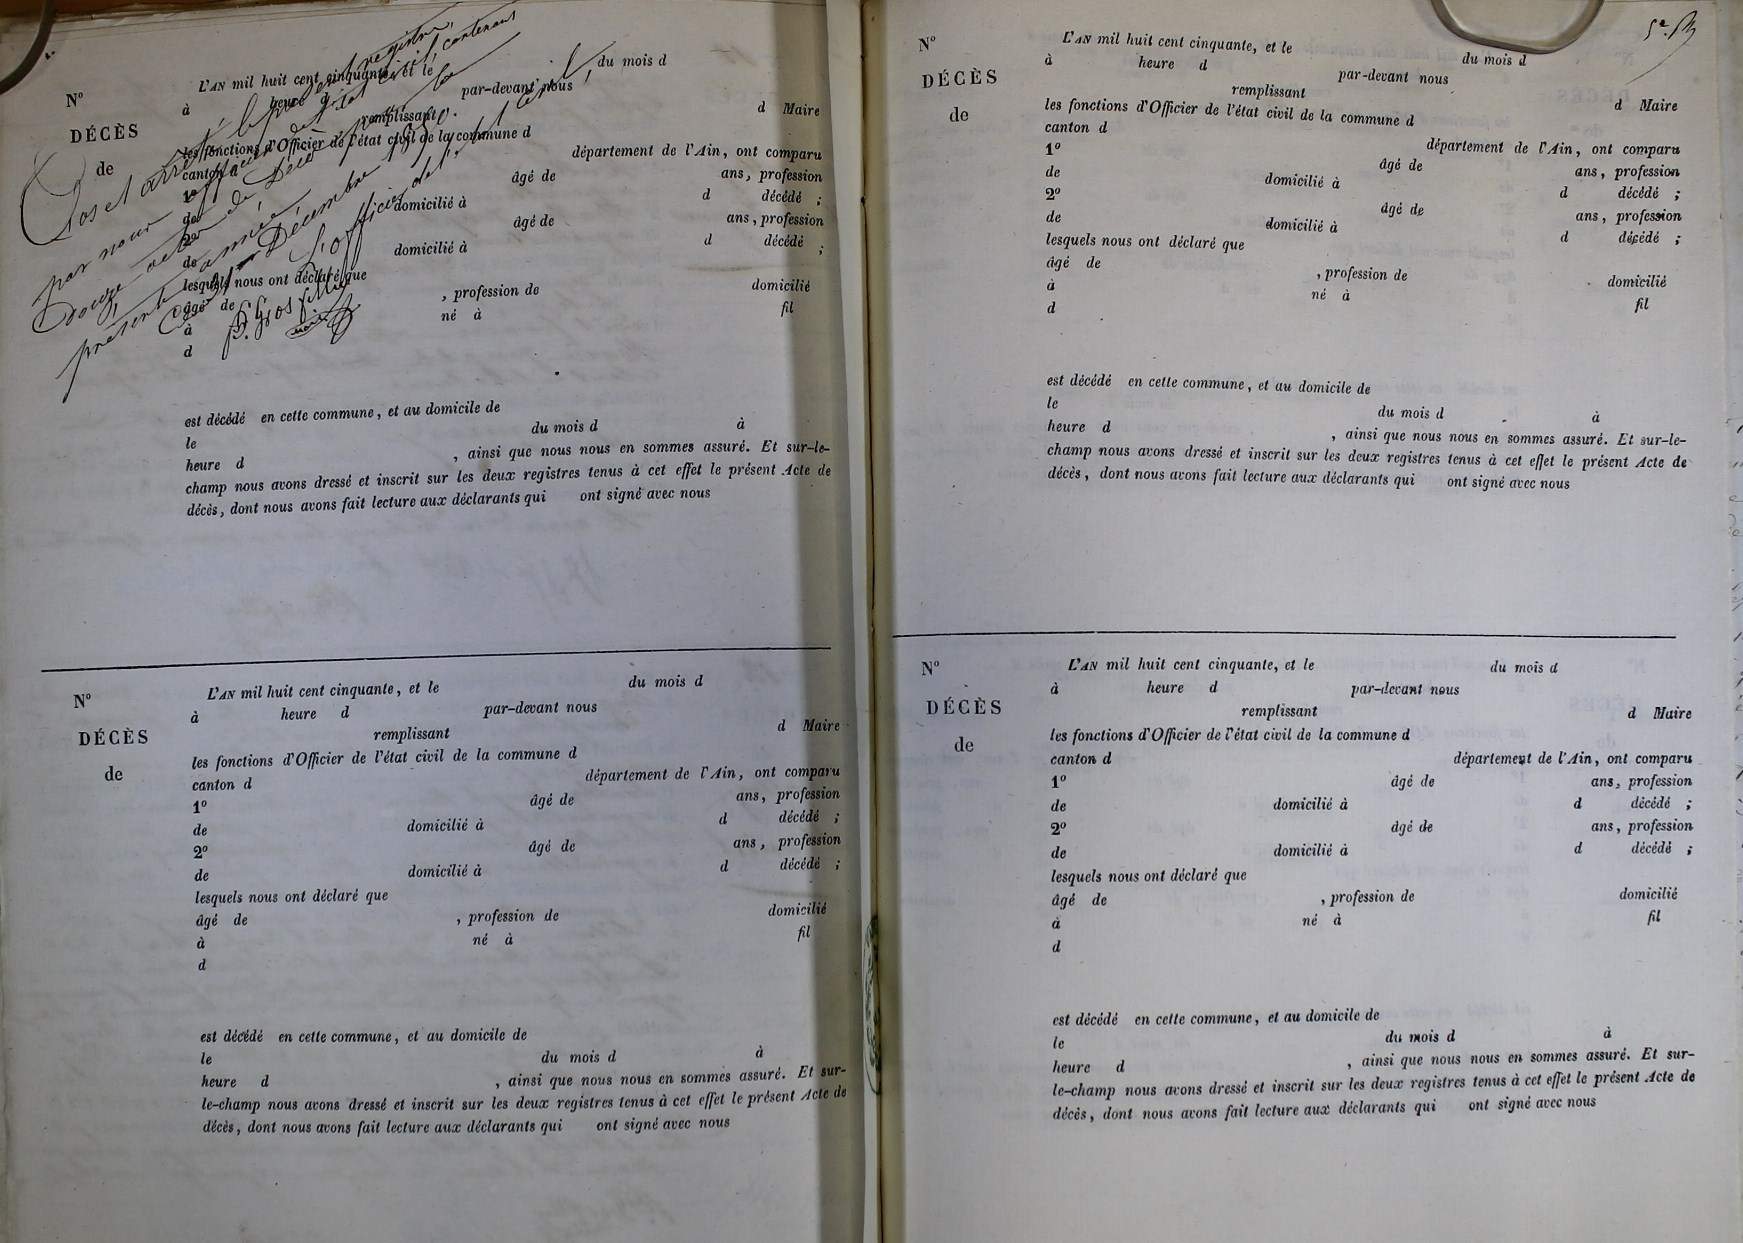 Clos et arrêté le présent registre,
par nous officier de l'état civil, contenant
douze actes de Décès pour la
présente année 1850.
Ce 31 Décembre
L'officier de l'état civil,
B. Grosfillex
maire
N°
DÉCÈS
de
L'AN mil huit cent cinquante, et le du mois d
à heure d par-devant nous
remplissant d Maire
les fonctions d'Officier de l'état civil de la commune d
canton d département de l'Ain, ont comparu
1° âgé de ans, profession
de domicilié à d décédé ;
2° âgé de ans, profession
de domicilié à d décédé ;
lesquels nous ont déclaré que
âgé de , profession de domicilié
à né à fil
d
est décédé en cette commune, et au domicile de
le du mois d à
heure d , ainsi que nous nous en sommes assuré. Et sur-le-
champ nous avons dressé et inscrit sur les deux registres tenus à cet effet le présent Acte de
décès, dont nous avons fait lecture aux déclarants qui ont signé avec nous
N°
DÉCÈS
de
L'AN mil huit cent cinquante, et le du mois d
à heure d par-devant nous
remplissant d Maire
les fonctions d'Officier de l'état civil de la commune d
canton d département de l'Ain, ont comparu
1° âgé de ans, profession
de domicilié à d décédé ;
2° âgé de ans, profession
de domicilié à d décédé ;
lesquels nous ont déclaré que
âgé de , profession de domicilié
à né à fil
d
est décédé en cette commune, et au domicile de
le du mois d à
heure d , ainsi que nous nous en sommes assuré. Et sur-
le-champ nous avons dressé et inscrit sur les deux registres tenus à cet effet le présent Acte de
décès, dont nous avons fait lecture aux déclarants qui ont signé avec nous
5e.
N°
DÉCÈS
de
L'AN mil huit cent cinquante, et le du mois d
à heure d par-devant nous
remplissant d Maire
les fonctions d'Officier de l'état civil de la commune d
canton d département de l'Ain, ont comparu
1° âgé de ans, profession
de domicilié à d décédé ;
2° âgé de ans, profession
de domicilié à d décédé ;
lesquels nous ont déclaré que
âgé de , profession de domicilié
à né à fil
d
est décédé en cette commune, et au domicile de
le du mois d à
heure d , ainsi que nous nous en sommes assuré. Et sur-le-
champ nous avons dressé et inscrit sur les deux registres tenus à cet effet le présent Acte de
décès, dont nous avons fait lecture aux déclarants qui ont signé avec nous
N°
DÉCÈS
de
L'AN mil huit cent cinquante, et le du mois d
à heure d par-devant nous
remplissant d Maire
les fonctions d'Officier de l'état civil de la commune d
canton d département de l'Ain, ont comparu
1° âgé de ans, profession
de domicilié à d décédé ;
2° âgé de ans, profession
de domicilié à d décédé ;
lesquels nous ont déclaré que
âgé de , profession de domicilié
à né à fil
d
est décédé en cette commune, et au domicile de
le du mois d à
heure d , ainsi que nous nous en sommes assuré. Et sur-
le-champ nous avons dressé et inscrit sur les deux registres tenus à cet effet le présent Acte de
décès, dont nous avons fait lecture aux déclarants qui ont signé avec nous